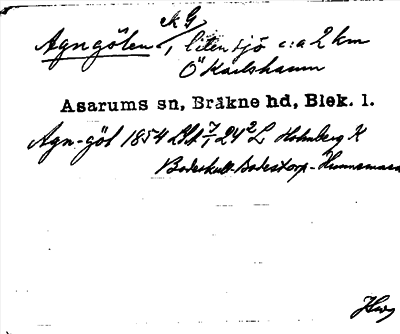 sk G
Agngölen, liten sjö c:a 2 km
Ö Karlshamn
Asarums sn, Bräkne hd, Blek. l.
Agn-göl 1854 7/1 24² L Holmberg K
Bodeskull-Bodestorp-Hunnemara